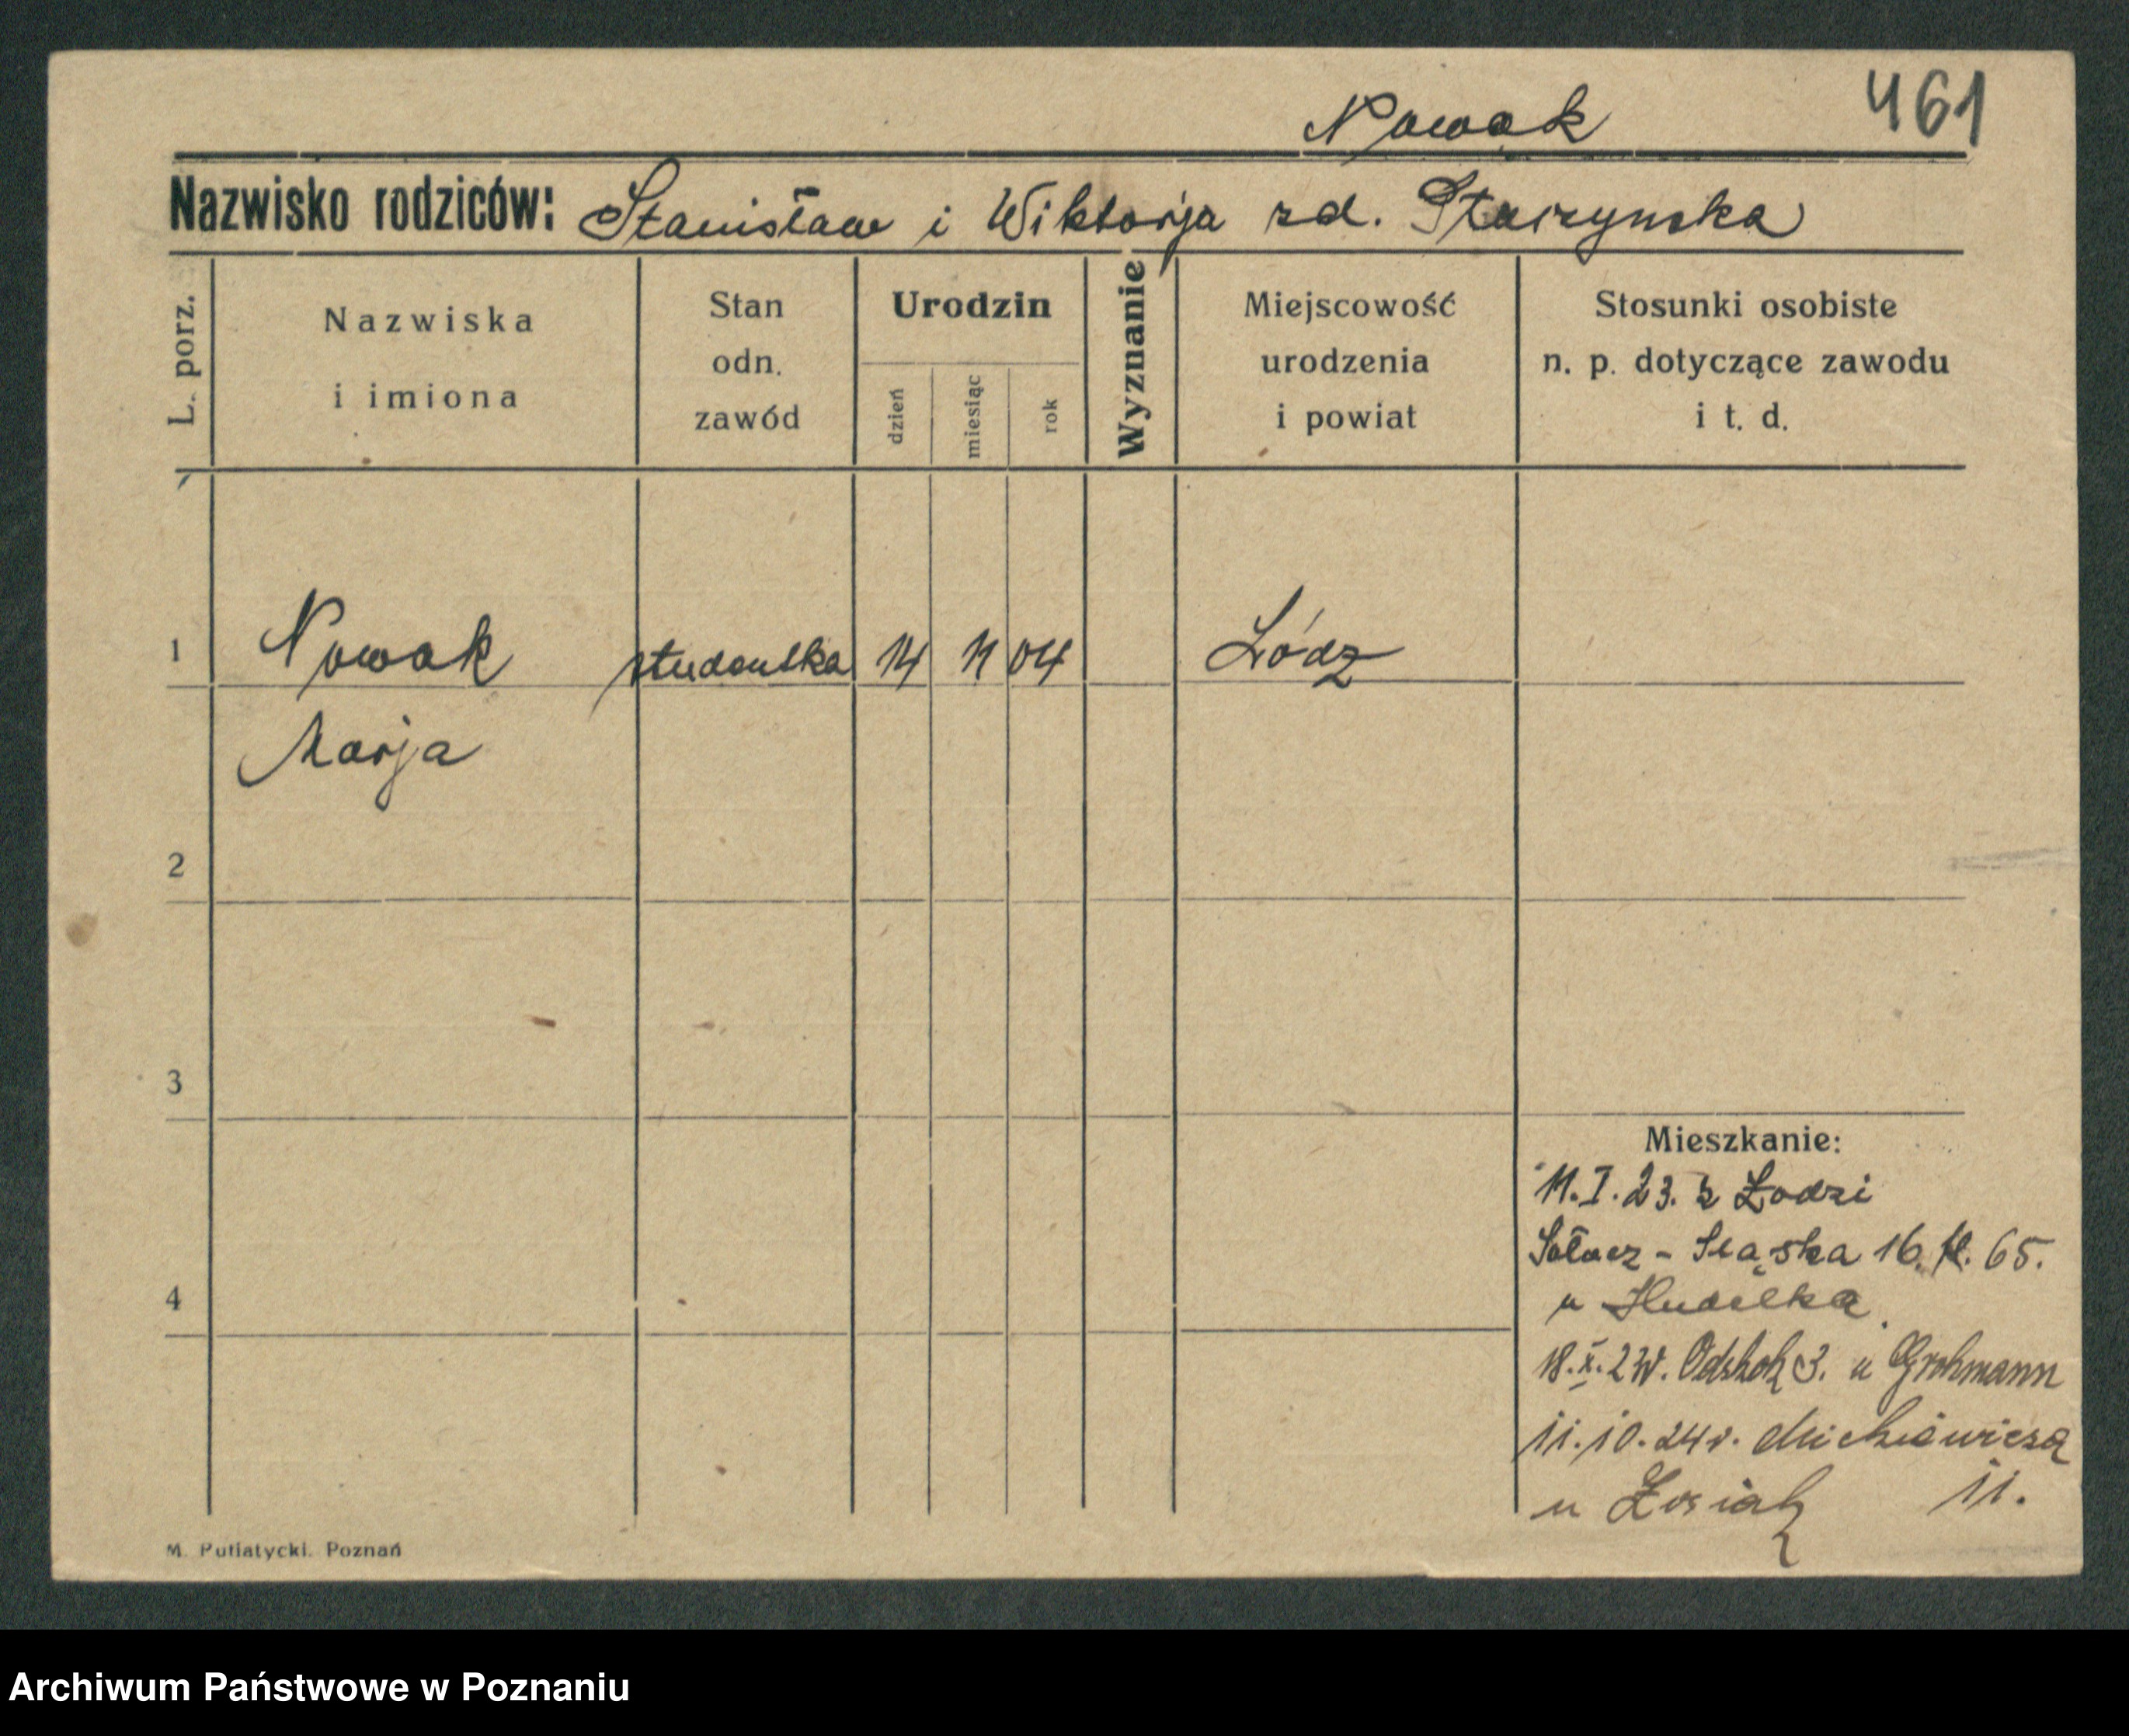 461
Nowak
Nazwisko rodziców: Stanisław i Wiktorja rd. Starzynska
L. porz.
Nazwiska i imiona
Stan odn. zawód
Urodzin
dzień
miesiąc
rok
Wyznanie
Miejscowość urodzenia i powiat
Stosunki osobiste n. p. dotyczące zawodu i t. d.
1 Nowak studentka 14 11 04 Łódz
Marja
2
3
4
Mieszkanie:
11. I. 23. z Łodzi
Sołacz - Sląska 16. 65.
u Hudelka
18. X. 23r. 3. u Grohmann
11.10.24r. Mickiewicza
u 11.
M. Putiatycki. Poznań
Archiwum Państwowe w Poznaniu